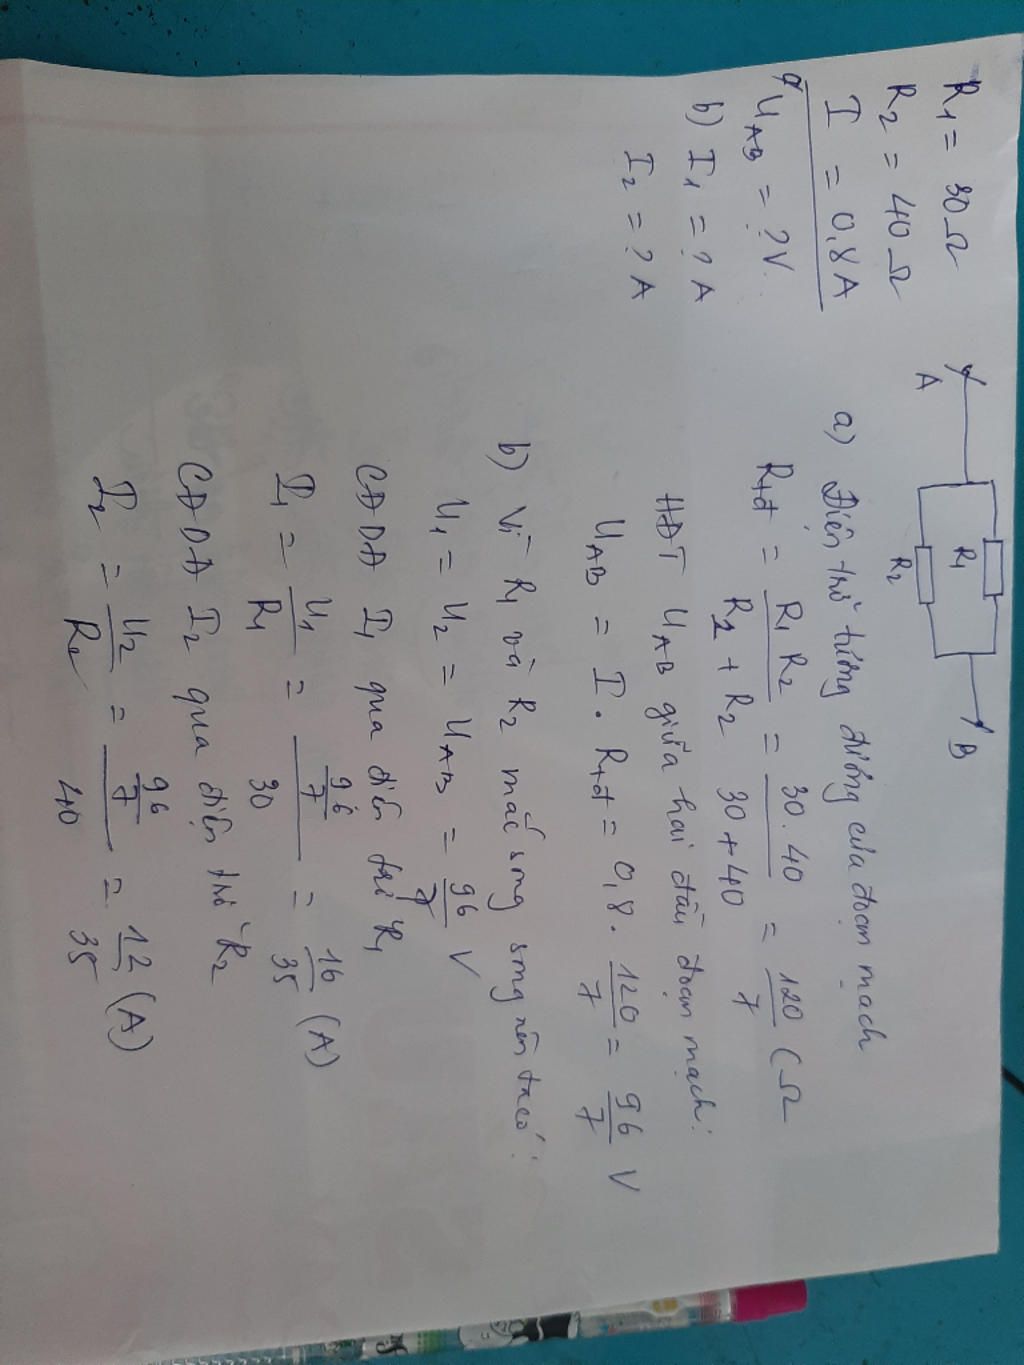 R1 = 30 Ω
R2 = 40 Ω
I = 0,8A
a) UAB = ? V.
b) I1 = ? A
I2 = ? A
A
R1
R2
B
a) Điện trở tương đương của đoạn mạch
Rtđ = R1 R2 / R1 + R2 = 30.40 / 30+40 = 120/7 (Ω
HĐT UAB giữa hai đầu đoạn mạch:
UAB = I . Rtđ = 0,8. 120/7 = 96/7 V
b) Vì R1 và R2 mắc song song nên ta có:
U1 = U2 = UAB = 96/7 V
CĐDĐ I1 qua điện trở R1
I1 = U1/R1 = 96/7 / 30 = 16/35 (A)
CĐDĐ I2 qua điện trở R2
I2 = U2/R2 = 96/7 / 40 = 12/35 (A)